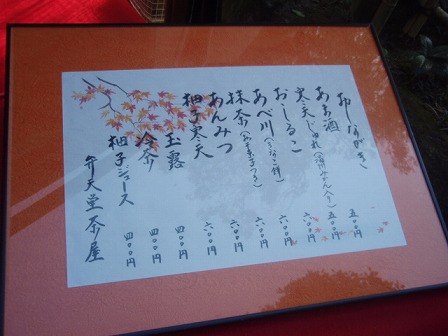 おしながき
あま酒 五〇〇円
寒天じゅれ(みかん入り) 五〇〇円
おしるこ 六〇〇円
あべ川(きなこ餅) 六〇〇円
抹茶(お干菓子つき) 六〇〇円
あんみつ 六〇〇円
柚子寒天 六〇〇円
玉露 四〇〇円
冷茶 四〇〇円
柚子ジュース 四〇〇円
弁天堂茶屋